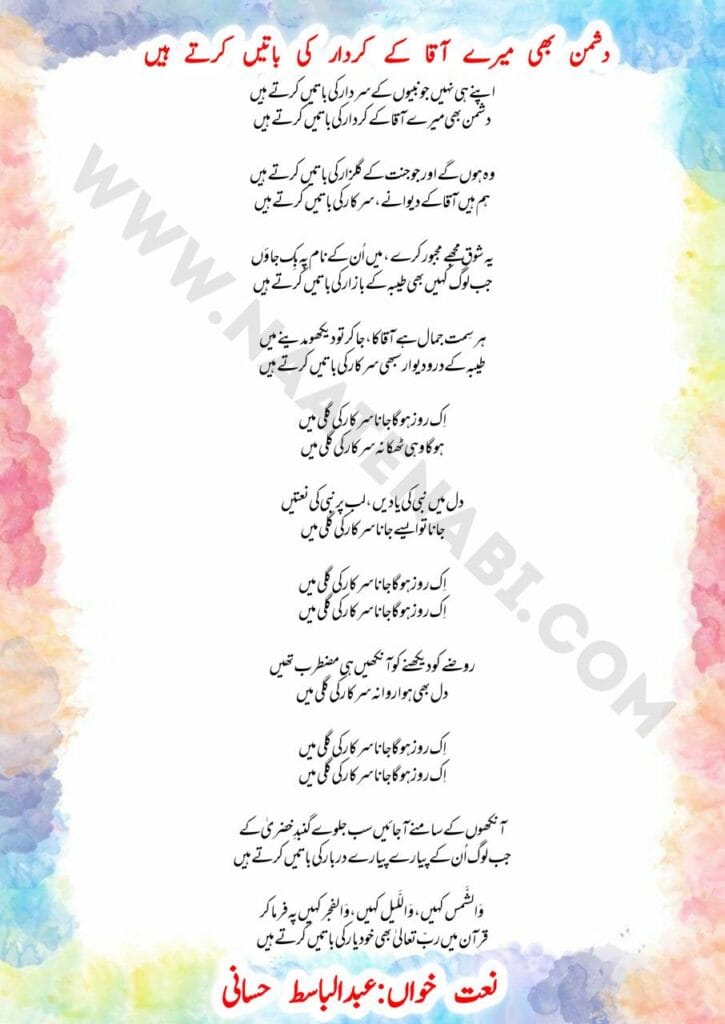 دشمن بھی میرے آقا کے کردار کی باتیں کرتے ہیں
اپنے ہی نہیں جو نبیوں کے سردار کی باتیں کرتے ہیں
دشمن بھی میرے آقا کے کردار کی باتیں کرتے ہیں
وہ ہوں گے اور جو جنت کے گلزار کی باتیں کرتے ہیں
ہم ہیں آقا کے دیوانے، سرکار کی باتیں کرتے ہیں
یہ شوق مجھے مجبور کرے، میں اُن کے نام پہ بِک جاؤں
جب لوگ کہیں بھی طیبہ کے بازار کی باتیں کرتے ہیں
ہر سِمت جمال ہے آقا کا، جا کر تو دیکھو مدینے میں
طیبہ کے در و دیوار سبھی سرکار کی باتیں کرتے ہیں
اِک روز ہو گا جانا سرکار کی گلی میں
ہو گا وہی ٹھکانہ سرکار کی گلی میں
دل میں نبی کی یادیں، لب پر نبی کی نعتیں
جانا تو ایسے جانا سرکار کی گلی میں
اِک روز ہو گا جانا سرکار کی گلی میں
اِک روز ہو گا جانا سرکار کی گلی میں
روضے کو دیکھنے کو آنکھیں ہی مضطرب تھیں
دل بھی ہوا روانہ سرکار کی گلی میں
اِک روز ہو گا جانا سرکار کی گلی میں
اِک روز ہو گا جانا سرکار کی گلی میں
آنکھوں کے سامنے آ جائیں سب جلوے گنبدِ خضریٰ کے
جب لوگ اُن کے پیارے پیارے دربار کی باتیں کرتے ہیں
وَالشَّمس کہیں، وَاللَّیل کہیں، وَالفجر کہیں پہ فرما کر
قرآن میں ربّ تعالیٰ بھی خود یار کی باتیں کرتے ہیں
نعت خواں: عبدالباسط حسانی
WWW.NAATENABI.COM